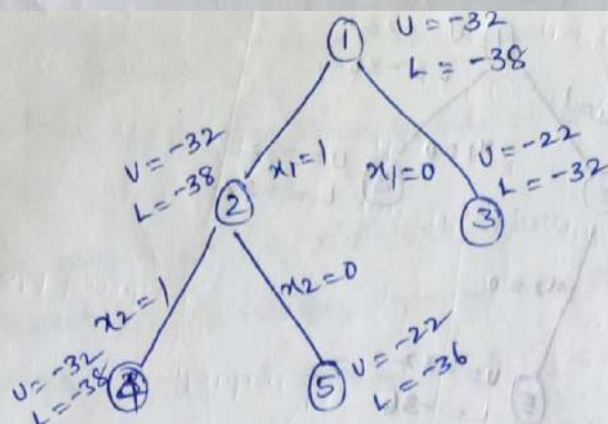 1 U = -32
L = -38
U = -32
L = -38
x1=1
x1=0
U = -22
L = -32
2
3
x2=1
x2=0
U = -32
L = -38
4
5
U = -22
L = -36